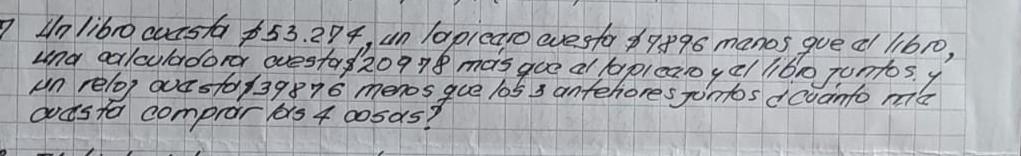 7 Un libro cuesta $53.274, un lapicero cuesta $7896 menos que el libro,
una calculadora cuesta $20978 más que el lapicero y el libro juntos. y
un reloj cuesta $39876 menos que los 3 anteriores juntos ¿cuánto me
cuesta comprar las 4 cosas?